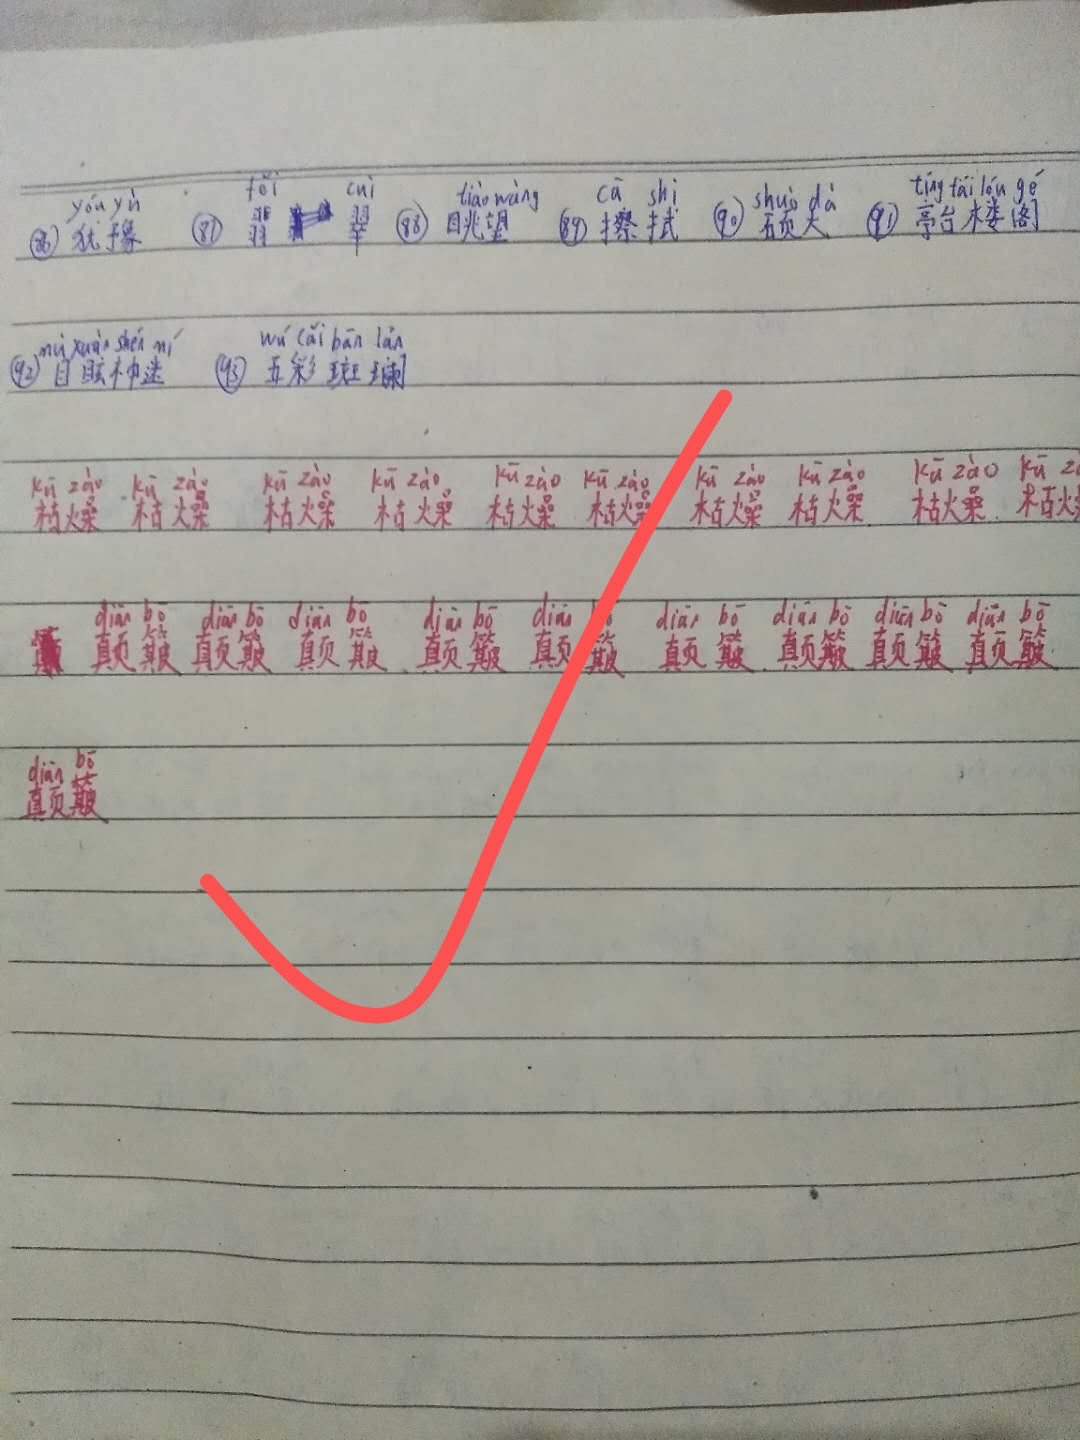 yóu yù fěi cuì tiào wàng cā shì shuò dà tíng tái lóu gé
86 犹豫 87 翡 翠 88 眺望 89 擦拭 90 硕大 91 亭台楼阁
mù xuàn shén mí wǔ cǎi bān lán
92 目眩神迷 93 五彩斑斓
kū zào kū zào kū zào kū zào kū zào kū zào kū zào kū zào kū zào kū
枯燥 枯燥 枯燥 枯燥 枯燥 枯燥 枯燥 枯燥 枯燥 枯燥
diān bō diān bō diān bō diān bō diān bō diān bō diān bō diān bō diān bō
颠簸 颠簸 颠簸 颠簸 颠簸 颠簸 颠簸 颠簸 颠簸
diān bō
颠簸